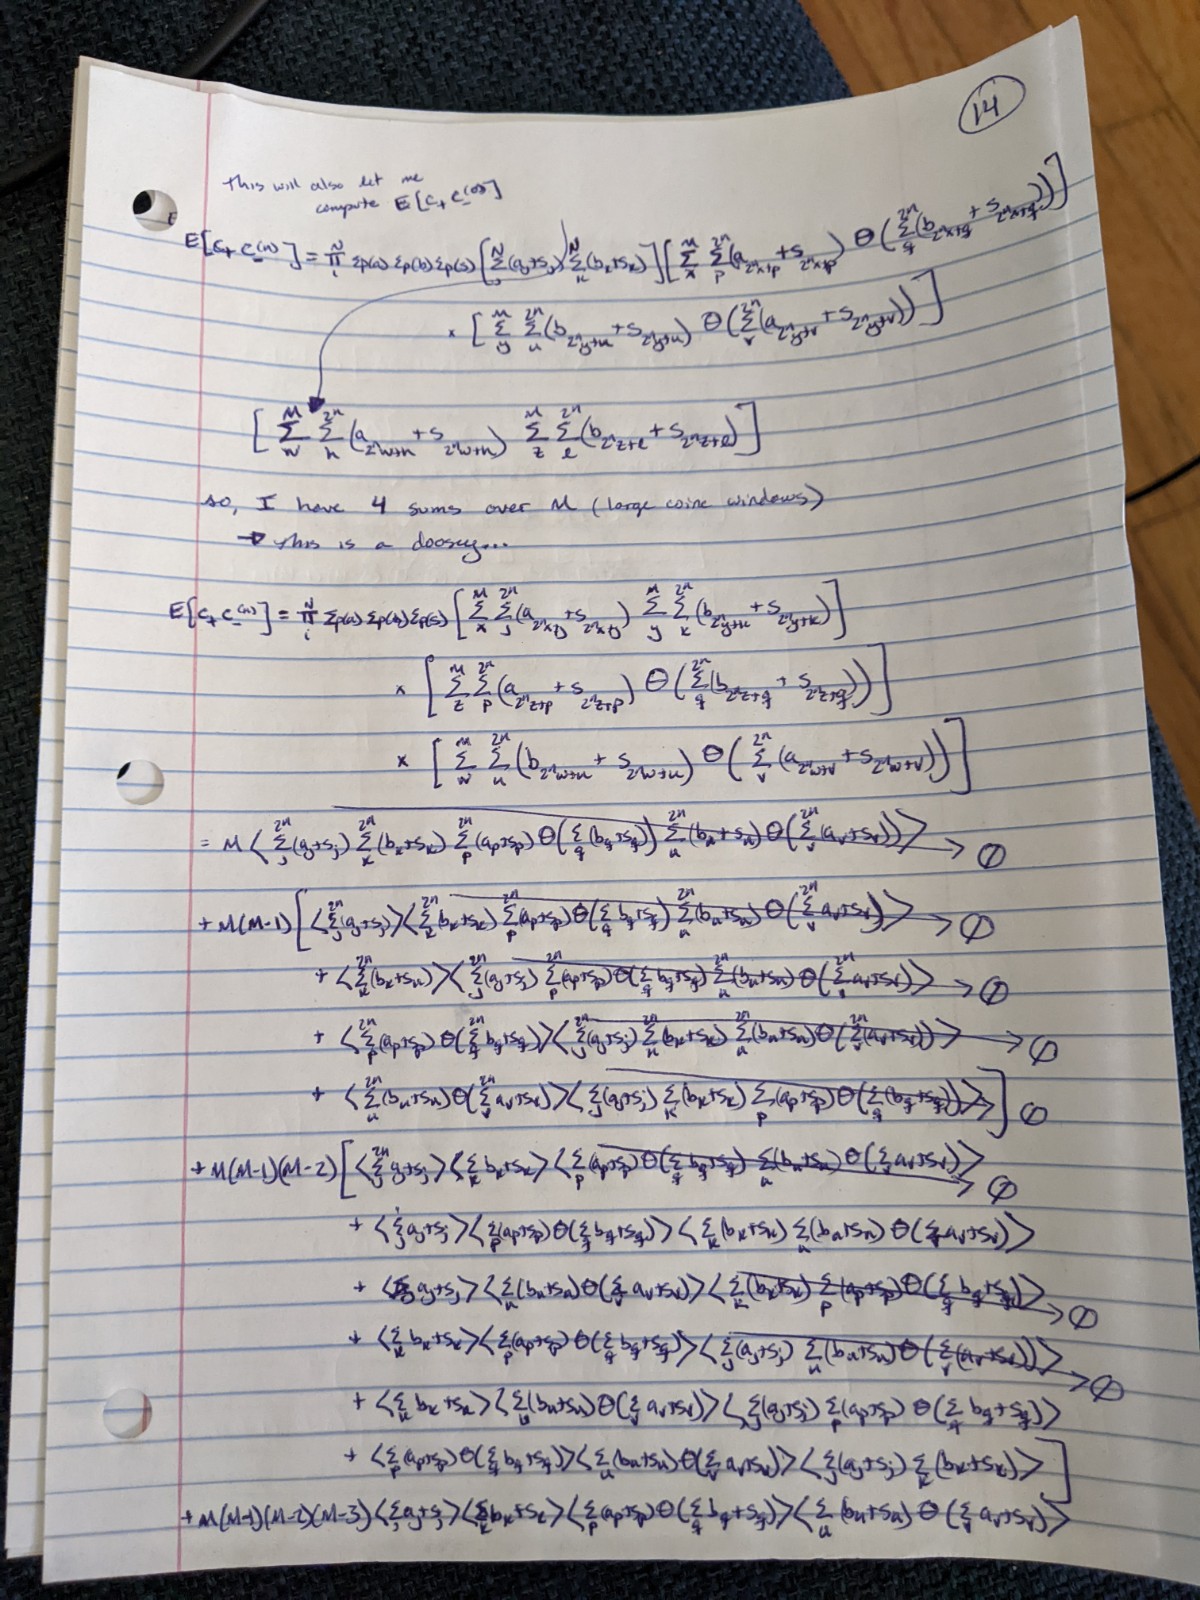 14
This will also let me
compute E[C₊ C₋⁽⁰⁾]
E[C₊ C₋⁽ⁿ⁾] = ∏ᵢᴺ Σp(a) Σp(b) Σp(s) [Σⱼᴺ(aⱼ+sⱼ) Σₖᴺ(bₖ+sₖ)] [Σₓᴹ Σₚ^{2ⁿ}(a_{2ⁿx+p} + s_{2ⁿx+p}) Θ(Σ_q^{2ⁿ}(b_{2ⁿx+q} + s_{2ⁿx+q}))]
× [Σ_y^M Σ_u^{2ⁿ}(b_{2ⁿy+u} + s_{2ⁿy+u}) Θ(Σ_v^{2ⁿ}(a_{2ⁿy+v} + s_{2ⁿy+v}))]
[Σ_w^M Σ_h^{2ⁿ}(a_{2ⁿw+h} + s_{2ⁿw+h}) Σ_z^M Σ_l^{2ⁿ}(b_{2ⁿz+l} + s_{2ⁿz+l})]
so, I have 4 sums over M (large coinc windows)
→ this is a doosey...
E[C₊ C₋⁽ⁿ⁾] = ∏ᵢᴺ Σp(a) Σp(b) Σp(s) [Σ_x^M Σ_j^{2ⁿ}(a_{2ⁿx+j} + s_{2ⁿx+j}) Σ_y^M Σ_k^{2ⁿ}(b_{2ⁿy+k} + s_{2ⁿy+k})]
× [Σ_z^M Σ_p^{2ⁿ}(a_{2ⁿz+p} + s_{2ⁿz+p}) Θ(Σ_q^{2ⁿ}(b_{2ⁿz+q} + s_{2ⁿz+q}))]
× [Σ_w^M Σ_u^{2ⁿ}(b_{2ⁿw+u} + s_{2ⁿw+u}) Θ(Σ_v^{2ⁿ}(a_{2ⁿw+v} + s_{2ⁿw+v}))]
= M⟨Σ_j^{2ⁿ}(a_j+s_j) Σ_k^{2ⁿ}(b_k+s_k) Σ_p^{2ⁿ}(a_p+s_p) Θ(Σ_q(b_q+s_q)) Σ_u^{2ⁿ}(b_u+s_u) Θ(Σ_v^{2ⁿ}(a_v+s_v))⟩ → ∅
+ M(M-1)[⟨Σ_j^{2ⁿ}(a_j+s_j)⟩⟨Σ_k^{2ⁿ}(b_k+s_k) Σ_p^{2ⁿ}(a_p+s_p) Θ(Σ_q b_q+s_q) Σ_u^{2ⁿ}(b_u+s_u) Θ(Σ_v^{2ⁿ} a_v+s_v)⟩ → ∅
+ ⟨Σ_k^{2ⁿ}(b_k+s_k)⟩⟨Σ_j^{2ⁿ}(a_j+s_j) Σ_p^{2ⁿ}(a_p+s_p) Θ(Σ_q b_q+s_q) Σ_u^{2ⁿ}(b_u+s_u) Θ(Σ_v^{2ⁿ} a_v+s_v)⟩ → ∅
+ ⟨Σ_p^{2ⁿ}(a_p+s_p) Θ(Σ_q^{2ⁿ} b_q+s_q)⟩⟨Σ_j^{2ⁿ}(a_j+s_j) Σ_k^{2ⁿ}(b_k+s_k) Σ_u^{2ⁿ}(b_u+s_u) Θ(Σ_v^{2ⁿ}(a_v+s_v))⟩ → ∅
+ ⟨Σ_u^{2ⁿ}(b_u+s_u) Θ(Σ_v^{2ⁿ} a_v+s_v)⟩⟨Σ_j(a_j+s_j) Σ_k(b_k+s_k) Σ_p(a_p+s_p) Θ(Σ_q(b_q+s_q))⟩] → ∅
+ M(M-1)(M-2)[⟨Σ_j^{2ⁿ} a_j+s_j⟩⟨Σ_k b_k+s_k⟩⟨Σ_p(a_p+s_p) Θ(Σ_q b_q+s_q) Σ_u(b_u+s_u) Θ(Σ_v a_v+s_v)⟩ → ∅
+ ⟨Σ_j a_j+s_j⟩⟨Σ_p(a_p+s_p) Θ(Σ_q b_q+s_q)⟩⟨Σ_k(b_k+s_k) Σ_u(b_u+s_u) Θ(Σ_v a_v+s_v)⟩
+ ⟨Σ_j a_j+s_j⟩⟨Σ_u(b_u+s_u) Θ(Σ_v a_v+s_v)⟩⟨Σ_k(b_k+s_k) Σ_p(a_p+s_p) Θ(Σ_q b_q+s_q)⟩ → ∅
+ ⟨Σ_k b_k+s_k⟩⟨Σ_p(a_p+s_p) Θ(Σ_q b_q+s_q)⟩⟨Σ_j(a_j+s_j) Σ_u(b_u+s_u) Θ(Σ_v(a_v+s_v))⟩ → ∅
+ ⟨Σ_k b_k+s_k⟩⟨Σ_u(b_u+s_u) Θ(Σ_v a_v+s_v)⟩⟨Σ_j(a_j+s_j) Σ_p(a_p+s_p) Θ(Σ_q b_q+s_q)⟩
+ ⟨Σ_p(a_p+s_p) Θ(Σ_q b_q+s_q)⟩⟨Σ_u(b_u+s_u) Θ(Σ_v a_v+s_v)⟩⟨Σ_j(a_j+s_j) Σ_k(b_k+s_k)⟩]
+ M(M-1)(M-2)(M-3)⟨Σ_j a_j+s_j⟩⟨Σ_k b_k+s_k⟩⟨Σ_p(a_p+s_p) Θ(Σ_q b_q+s_q)⟩⟨Σ_u(b_u+s_u) Θ(Σ_v a_v+s_v)⟩